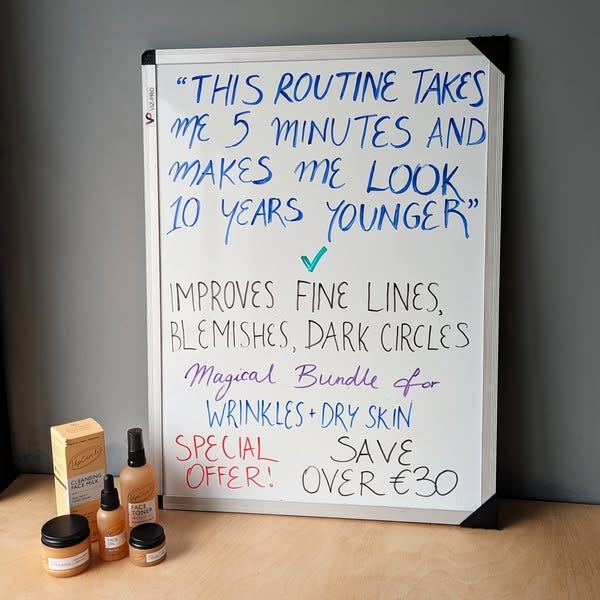 "THIS ROUTINE TAKES
ME 5 MINUTES AND
MAKES ME LOOK
10 YEARS YOUNGER"
IMPROVES FINE LINES,
BLEMISHES, DARK CIRCLES
Magical Bundle for
WRINKLES + DRY SKIN
SPECIAL
OFFER!
SAVE
OVER €30
VIZ-PRO
UpCircle
CLEANSING
FACE MILK
FACE
TONER
FACE